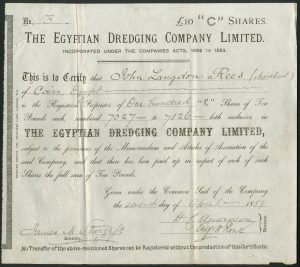 No. 3. £10 "C" SHARES.
THE EGYPTIAN DREDGING COMPANY LIMITED.
INCORPORATED UNDER THE COMPANIES ACTS, 1862 TO 1883.
This is to Certify that John Langdon Rees
of Cairo, Egypt
is the Registered Proprietor of One Hundred "C" Shares of Ten
Pounds each, numbered 7027 to 7126 both inclusive, in
THE EGYPTIAN DREDGING COMPANY LIMITED,
subject to the provisions of the Memorandum and Articles of Association of the
said Company, and that there has been paid up in respect of each of such
Shares the full sum of Ten Pounds.
Given under the Common Seal of the Company
the seventh day of April 1887
James
No Transfer of the above-mentioned Shares can be Registered without the production of this Certificate.